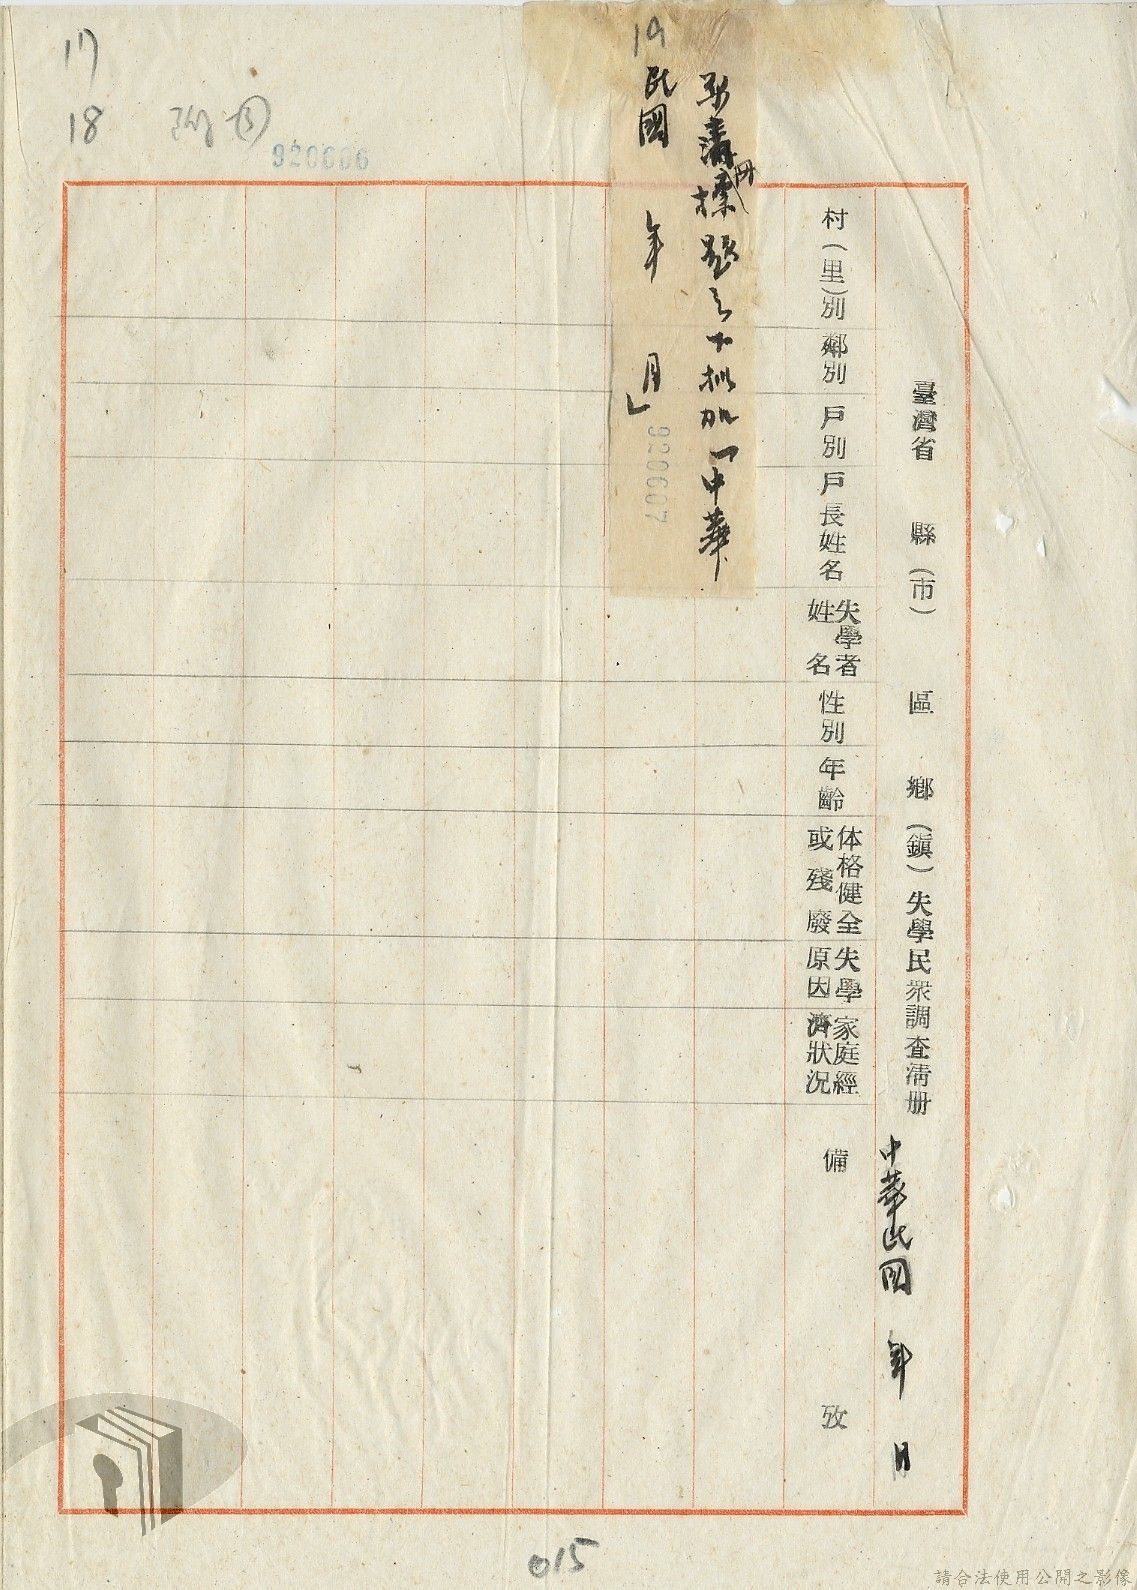 臺灣省　縣（市）　區　鄉（鎮）失學民眾調查清册
中華民國　年　月
村（里）別
鄰別
戶別
戶長姓名
失學者
姓名
性別
年齡
体格健全
或殘廢
失學
原因
家庭經
濟狀況
備　攷
清册標題之下擬加「中華
民國　年　月」
19
17
18
920606
920607
015
請合法使用公開之影像